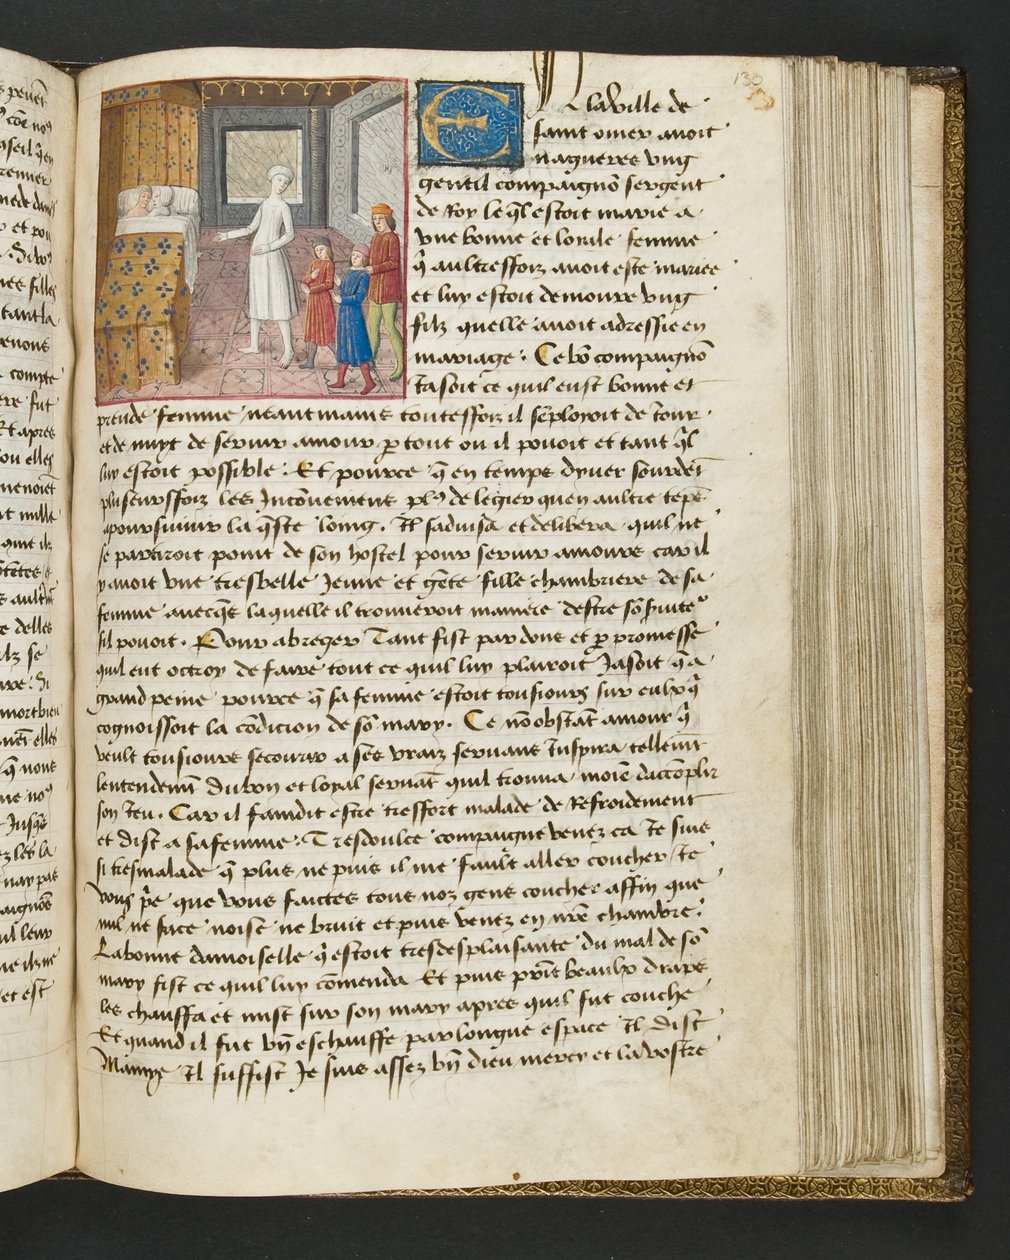 130
En la ville de
saint omer avoit
nagueres ung
gentil compaignõ sergent
de Roy leq̃l estoit marie a
une bonne et loiale femme
q̃ aultreffoiz avoit este mariee
et luy estoit demoure ung
filz quelle avoit adressie en
mariage. Ce bõ compaignõ
Jasoit ce quil eust bonne et
prude femme neantmains touteffoiz il sẽployoit de Jour
et de nuyt de servir amour p̱ tout ou il povoit et tant q̃l
luy estoit possible. Et pource q̃ en temps dyver sourdẽt
plusieursffoiz les Incõveniens pl9 de legier quen aultre tẽps
a poursuivir la q̃ste loing. Il sadvisa et delibera quil ne
se partiroit point de son hostel pour servir amours car il
y avoit une tresbelle Jeune et gẽte fille chambriere de sa
femme avecq̃s laquelle il trouveroit maniere destre sõ serviteur
sil povoit. Pour abreger Tant fist par dons et p̱ promesse
quil eut octroy de faire tout ce quil luy plairoit Jasoit q̃ a
grand peine pource q̃ sa femme estoit tousiours sur eulx q̃
cognoissoit la cõdicion de sõ mary. Ce nõ obstãt amour q̃
veult tousiours secourir a ses vraiz servans Inspira tellemẽt
lentendemẽt du bon et loyal servãt quil trouva moiẽ dacõplir
son Jeu. Car il faindit estre tresfort malade de Refroidement
et dist a sa femme. Tresdoulce compaigne venez ca Je suis
si tresmalade q̃ plus ne puis il me fault aller coucher Je
vous p̃e que vous faictes tous noz gens coucher affin que
nul ne face noise ne bruit et puis venez en nr̃e chambre.
La bonne damoiselle q̃ estoit tresdesplaisante du mal de sõ
mary fist ce quil luy cõmenda Et puis prĩt beaulx draps
les chauffa et mist sur son mary apres quil fut couche
Et quand il fut bñ eschauffe par longue espace Il dist
Mamye Il suffist Je suis assez bñ dieu mercy et la vostre